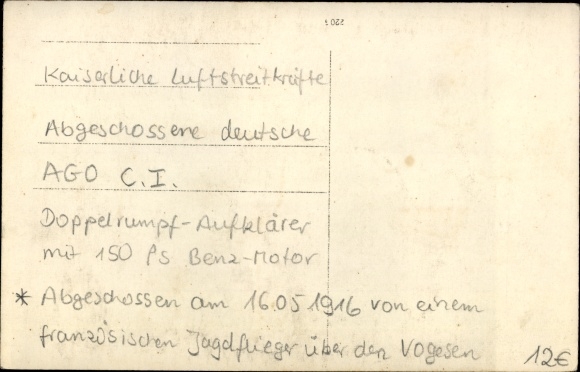 220 1
Kaiserliche Luftstreitkräfte
Abgeschossene deutsche
AGO C.I.
Doppelrumpf-Aufklärer
mit 150 Ps Benz-Motor
* Abgeschossen am 16.05.1916 von einem
französischen Jagdflieger über den Vogesen
12€